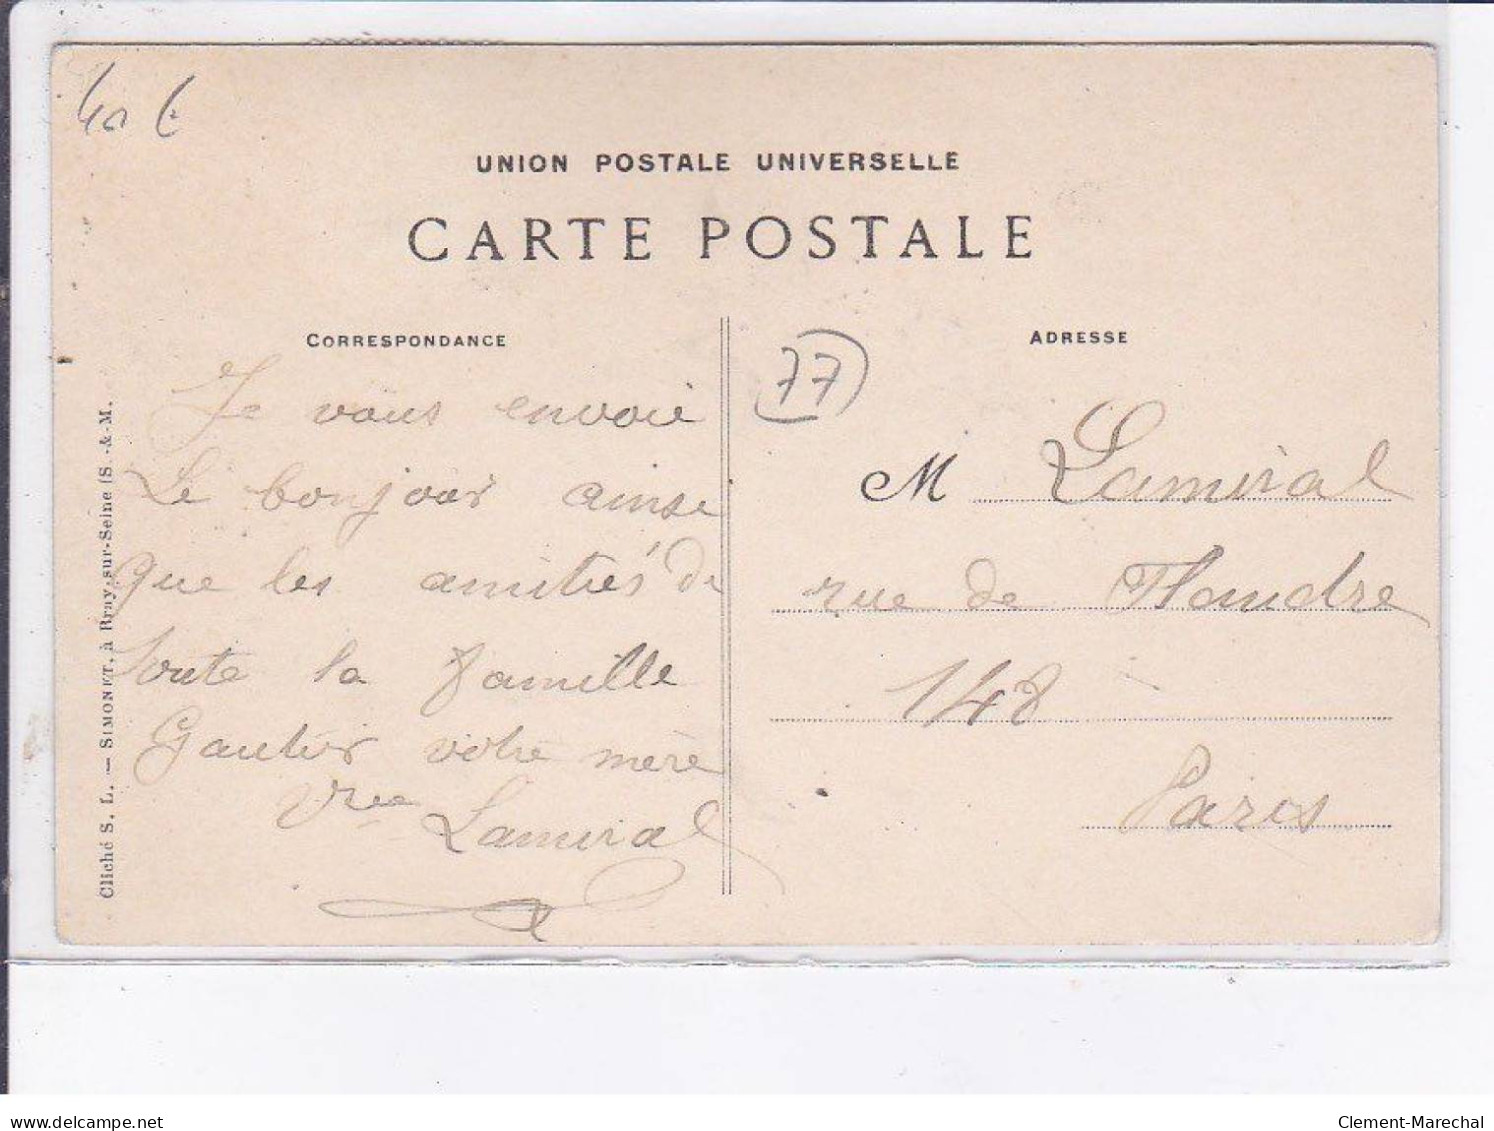 40 €
UNION POSTALE UNIVERSELLE
CARTE POSTALE
CORRESPONDANCE
ADRESSE
77
Je vous envoie
Le bonjour ainse
que les amitiés de
toute la famille
Gautier votre mère
Vve Lamiral
M Lamiral
rue de Flandre
148
Paris
Cliché S. L. — SIMONET, à Bray-sur-Seine (S.-&-M.
delcampe.net
Clement-Marechal